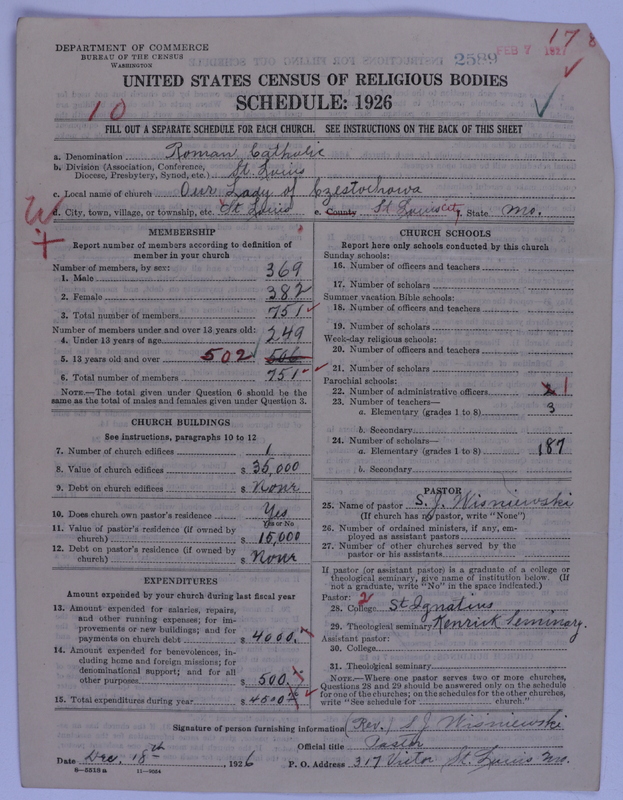 17 8
DEPARTMENT OF COMMERCE
BUREAU OF THE CENSUS
WASHINGTON
2589
FEB 7 1927
UNITED STATES CENSUS OF RELIGIOUS BODIES
SCHEDULE: 1926
10
FILL OUT A SEPARATE SCHEDULE FOR EACH CHURCH. SEE INSTRUCTIONS ON THE BACK OF THIS SHEET
a. Denomination Roman Catholic
b. Division (Association, Conference, Diocese, Presbytery, Synod, etc.) St. Louis
c. Local name of church Our Lady of Czestochowa
d. City, town, village, or township, etc. St Louis e. County St Louis City f. State Mo.
MEMBERSHIP
Report number of members according to definition of
member in your church
Number of members, by sex:
1. Male 369
2. Female 382
3. Total number of members 751
Number of members under and over 13 years old:
4. Under 13 years of age 249
5. 13 years old and over 502 506
6. Total number of members 751
NOTE.—The total given under Question 6 should be the
same as the total of males and females given under Question 3.
CHURCH BUILDINGS
See instructions, paragraphs 10 to 12
7. Number of church edifices 1
8. Value of church edifices $ 35,000
9. Debt on church edifices $ None
10. Does church own pastor's residence Yes
Yes or No
11. Value of pastor's residence (if owned by
church) $ 15,000
12. Debt on pastor's residence (if owned by
church) $ None
EXPENDITURES
Amount expended by your church during last fiscal year
13. Amount expended for salaries, repairs,
and other running expenses; for im-
provements or new buildings; and for
payments on church debt $ 4000.
14. Amount expended for benevolences, in-
cluding home and foreign missions; for
denominational support; and for all
other purposes $ 500.
15. Total expenditures during year $ 4500
CHURCH SCHOOLS
Report here only schools conducted by this church
Sunday schools:
16. Number of officers and teachers
17. Number of scholars
Summer vacation Bible schools:
18. Number of officers and teachers
19. Number of scholars
Week-day religious schools:
20. Number of officers and teachers
21. Number of scholars
Parochial schools:
22. Number of administrative officers 1
23. Number of teachers—
a. Elementary (grades 1 to 8) 3
b. Secondary
24. Number of scholars—
a. Elementary (grades 1 to 8) 187
b. Secondary
PASTOR
25. Name of pastor S. J. Wisniewski
(If church has no pastor, write "None")
26. Number of ordained ministers, if any, em-
ployed as assistant pastors
27. Number of other churches served by the
pastor or his assistants
If pastor (or assistant pastor) is a graduate of a college or
theological seminary, give name of institution below. (If
not a graduate, write "No" in the space indicated.)
Pastor: 2
28. College St Ignatius
29. Theological seminary Kenrick Seminary.
Assistant pastor:
30. College
31. Theological seminary
NOTE.—Where one pastor serves two or more churches,
Questions 28 and 29 should be answered only on the schedule
for one of the churches; on the schedules for the other churches,
write "See schedule for church."
Signature of person furnishing information (Rev.) S J Wisniewski
Official title Pastor
Date Dec. 18th, 1926 P. O. Address 317 Victor St. Louis Mo.
8—5518a 11—9064